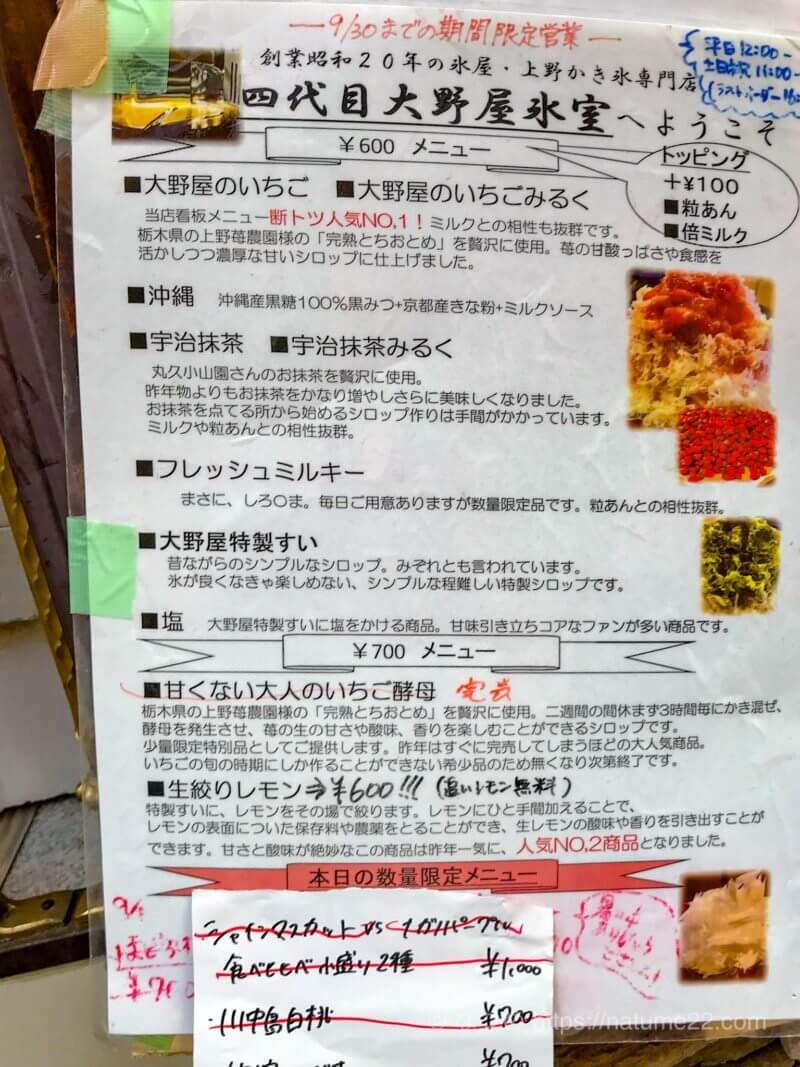 9/30までの期間限定営業
平日12:00-
土日祝11:00-
ラストオーダー
創業昭和20年の氷屋・上野かき氷専門店
四代目大野屋氷室へようこそ
¥600 メニュー
トッピング
+¥100
■粒あん
■倍ミルク
■大野屋のいちご ■大野屋のいちごみるく
当店看板メニュー断トツ人気NO,1！ミルクとの相性も抜群です。
栃木県の上野苺農園様の「完熟とちおとめ」を贅沢に使用。苺の甘酸っぱさや食感を
活かしつつ濃厚な甘いシロップに仕上げました。
■沖縄 沖縄産黒糖100%黒みつ+京都産きな粉+ミルクソース
■宇治抹茶 ■宇治抹茶みるく
丸久小山園さんのお抹茶を贅沢に使用。
昨年物よりもお抹茶をかなり増やしさらに美味しくなりました。
お抹茶を点てる所から始めるシロップ作りは手間がかかっています。
ミルクや粒あんとの相性抜群。
■フレッシュミルキー
まさに、しろ○ま。毎日ご用意ありますが数量限定品です。粒あんとの相性抜群。
■大野屋特製すい
昔ながらのシンプルなシロップ。みぞれとも言われています。
氷が良くなきゃ楽しめない、シンプルな程難しい特製シロップです。
■塩 大野屋特製すいに塩をかける商品。甘味引き立ちコアなファンが多い商品です。
¥700 メニュー
■甘くない大人のいちご酵母 完売
栃木県の上野苺農園様の「完熟とちおとめ」を贅沢に使用。二週間の間休まず3時間毎にかき混ぜ、
酵母を発生させ、苺の生の甘さや酸味、香りを楽しむことができるシロップです。
少量限定特別品としてご提供します。昨年はすぐに完売してしまうほどの大人気商品。
いちごの旬の時期にしか作ることができない希少品のため無くなり次第終了です。
■生絞りレモン⇒¥600!!!(追いレモン無料)
特製すいに、レモンをその場で絞ります。レモンにひと手間加えることで、
レモンの表面についた保存料や農薬をとることができ、生レモンの酸味や香りを引き出すことが
できます。甘さと酸味が絶妙なこの商品は昨年一気に、人気NO,2商品となりました。
本日の数量限定メニュー
シャインマスカットVSナガノパープル
食べ比べ小盛り2種 ¥1,000
川中島白桃 ¥700
¥700
https://natume22.com